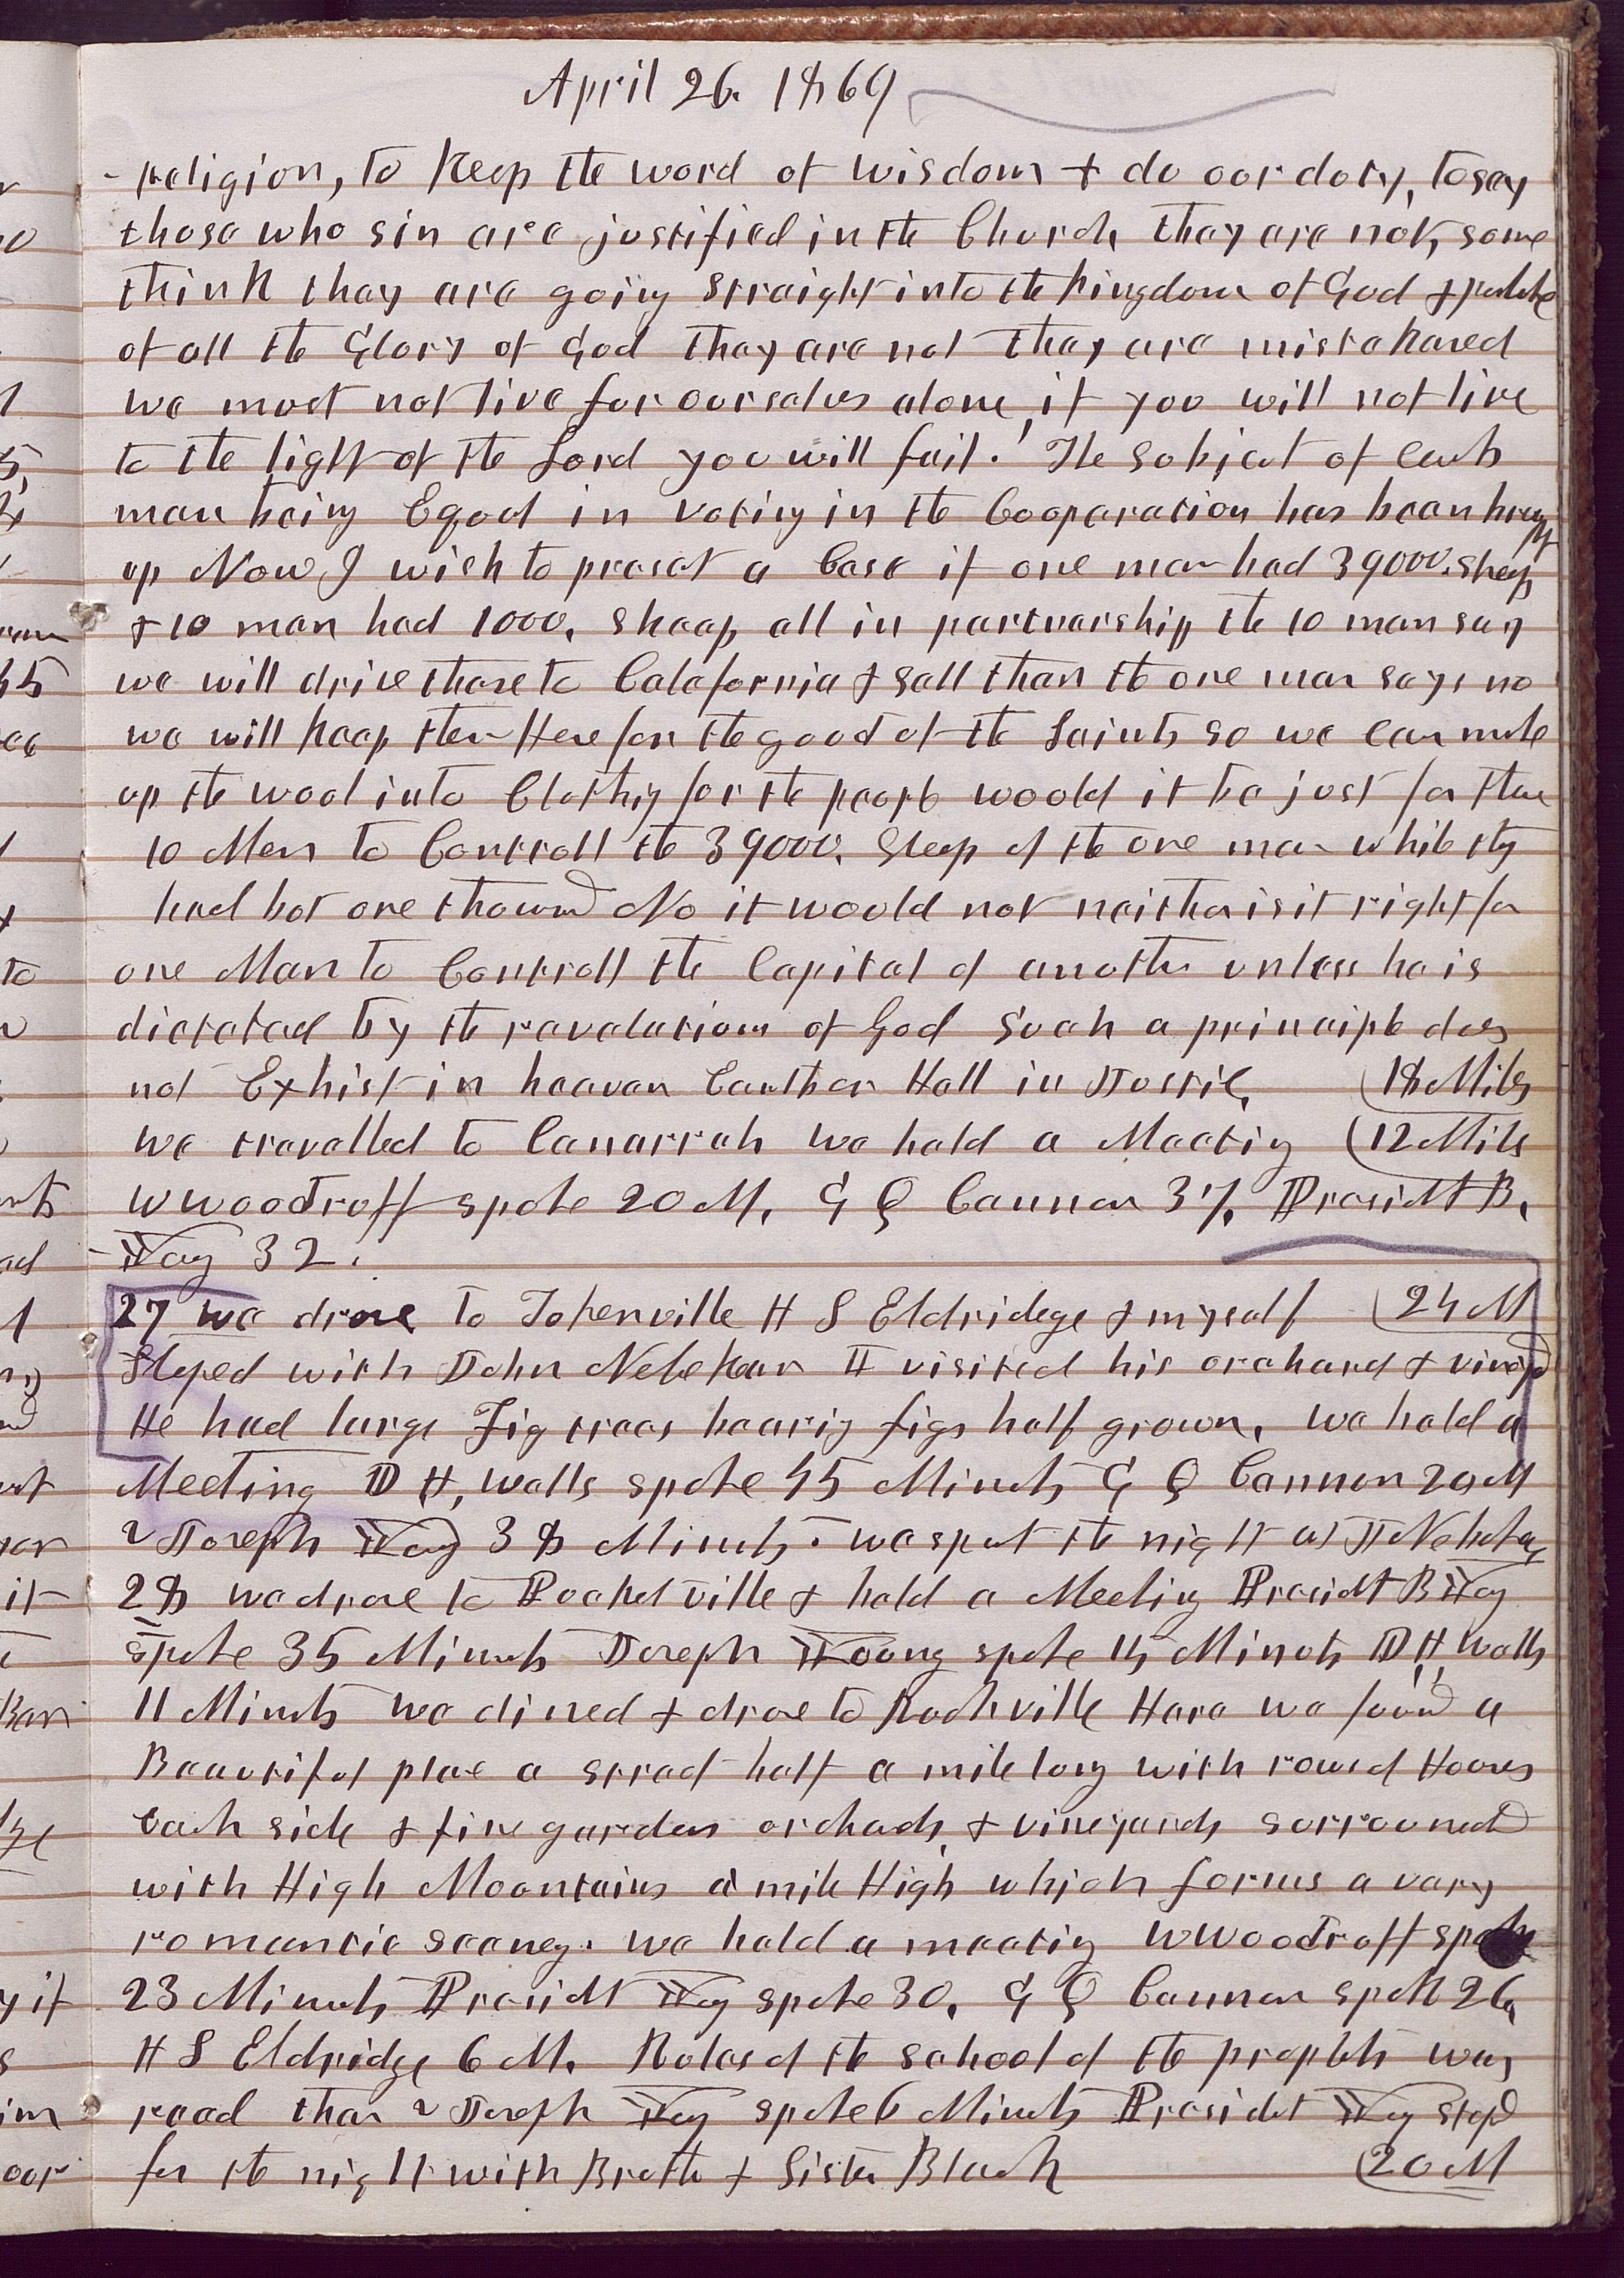 April 26. 1869
religion, to keep the word of wisdom & do our duty, to say
those who sin are justified in the Church they are not, some
think they are going straight into the Kingdom of God & partake
of all the Glory of God they are not they are mistakened
we must not live for ourselves alone, if you will not live
to the light of the Lord you will fail. The subject of each
man being Equal in voting in the Cooperation has been brought
up Now I wish to presat a Case if one man had 39000. sheep
& 10 man had 1000. sheep all in partnership the 10 man say
we will drive these to Calafornia & sell them the one man says no
we will keep them Here for the good of the Saints so we can make
up the wool into Clothing for the people would it be just for them
10 Men to Controll the 39000. Sheep of the one man while they
had but one thousand No it would not neither is it right for
one Man to Controll the Capital of another unless he is
dictated by the revelations of God Such a principle does
not Exhist in heaven Hall in 18 Miles
we travelled to Canarrah we held a Meeting 12 Mile
W Woodruff spoke 20 M, G Q Cannon 37, Presidt B.
Young 32.
27 we drove to Tokerville H S Eldridege & myself 24 M
Sloped with John Nebeker I visited his orchard & vineyd
He had large Fig trees bearing figs half grown, we held a
Meeting D H, Wells spoke 45 Minuts G Q Cannon 20 M
Joseph Young 38 Minuts. we spent the night at J Nebeker
28 we drove to Rockville & held a Meeting Presidt B Young
spoke 35 Minuts Joseph Young spoke 15 Minuts D H Wells
11 Minuts We dined & drove to Rockville Here we found a
Beautiful place a street half a mile long with rows of Houses
Each side & fine gardens orchads, & vineyards surrouned
with High Mountains a mile High which forms a very
romantic sceeney. we held a meeting W Woodruff spoke
23 Minuts Presidt Young spoke 30, G Q Cannon spok 26,
H S Eldridge 6 M. Rules of the school of the prophets was
read then Joseph Young spoke 6 Minuts Presidet Young stopd
for the night with Broth & Sister Black 20 M